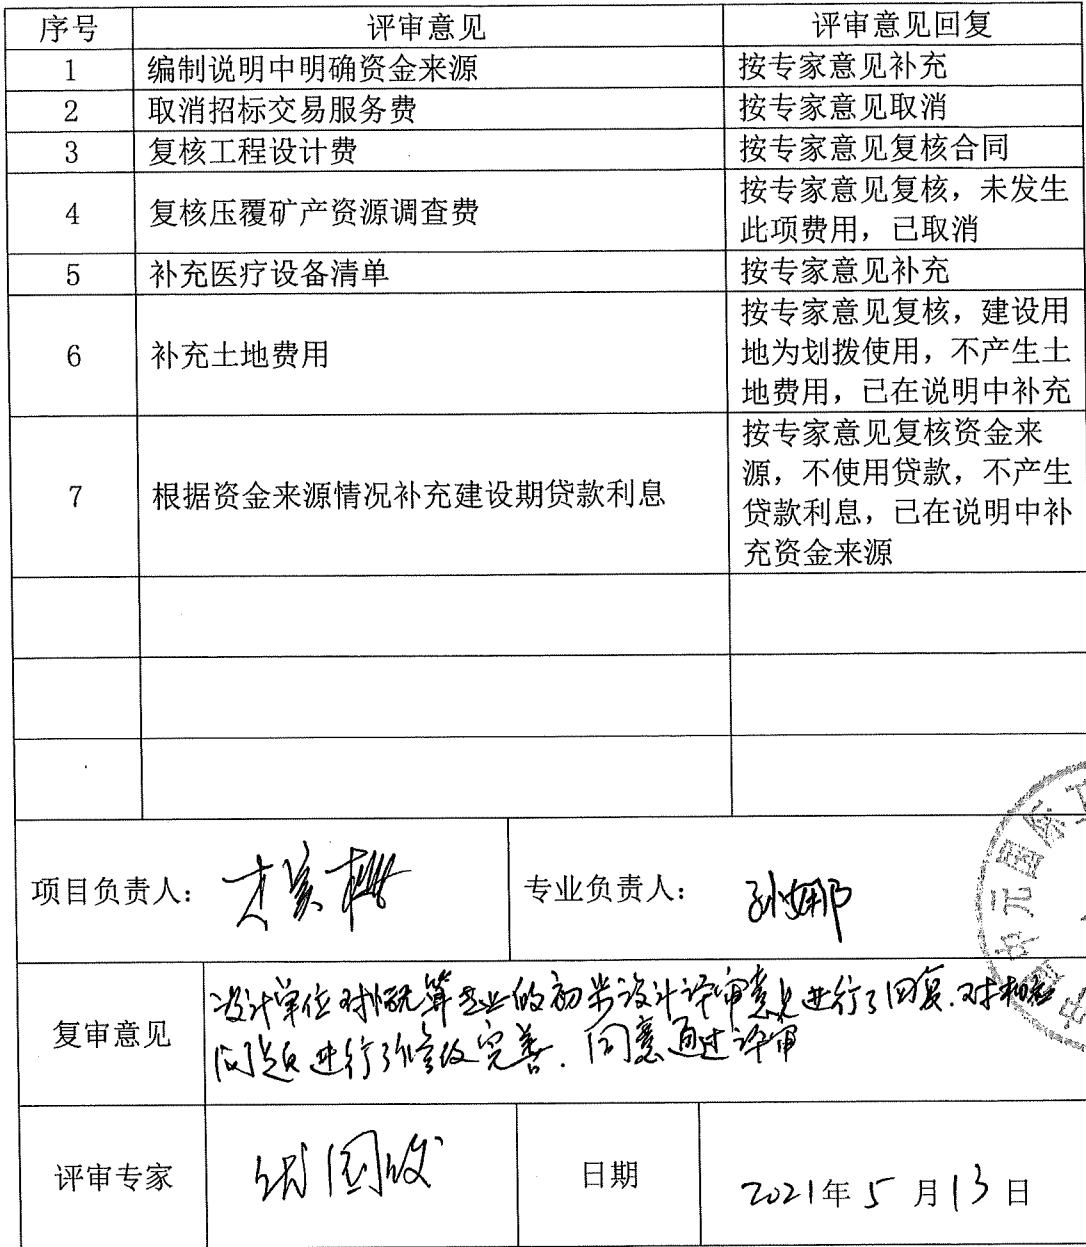 序号 评审意见 评审意见回复
1 编制说明中明确资金来源 按专家意见补充
2 取消招标交易服务费 按专家意见取消
3 复核工程设计费 按专家意见复核合同
4 复核压覆矿产资源调查费 按专家意见复核，未发生
此项费用，已取消
5 补充医疗设备清单 按专家意见补充
6 补充土地费用 按专家意见复核，建设用
地为划拨使用，不产生土
地费用，已在说明中补充
7 根据资金来源情况补充建设期贷款利息 按专家意见复核资金来
源，不使用贷款，不产生
贷款利息，已在说明中补
充资金来源
项目负责人： 专业负责人： 孙娜
复审意见 设计单位对概算专业的初步设计评审意见进行了回复.对相关
问题进行了修改完善.同意通过评审
评审专家 日期 2021年5月13日
中元国际工